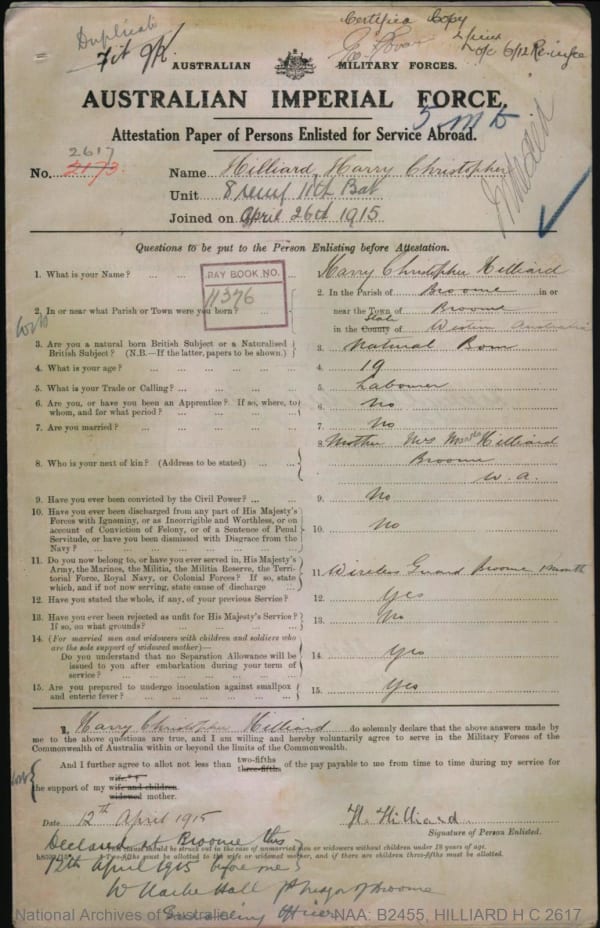 Duplicate
Certified Copy
Fit
AUSTRALIAN MILITARY FORCES.
o/c 6/12 Re-inf
AUSTRALIAN IMPERIAL FORCE.
Attestation Paper of Persons Enlisted for Service Abroad.
2617
No. 2173 Name Hilliard, Harry Christopher
Unit 8 reinf 11th Bat
Joined on April 26th 1915
Questions to be put to the Person Enlisting before Attestation.
1. What is your Name? ... Harry Christopher Hilliard
PAY BOOK NO.
11376
2. In or near what Parish or Town were you born? ... 2. In the Parish of Broome in or
near the Town of Broome
State
in the County of Western Australia
3. Are you a natural born British Subject or a Naturalised
British Subject? (N.B.—If the latter, papers to be shown.) 3. Natural Born
4. What is your age? ... 4. 19
5. What is your Trade or Calling? ... 5. Labourer
6. Are you, or have you been an Apprentice? If so, where, to
whom, and for what period? ... 6. No
7. Are you married? ... 7. No
8. Who is your next of kin? (Address to be stated) ... 8. Mother Mrs Hilliard
Broome
W.A.
9. Have you ever been convicted by the Civil Power? ... 9. No
10. Have you ever been discharged from any part of His Majesty's
Forces with Ignominy, or as Incorrigible and Worthless, or on
account of Conviction of Felony, or of a Sentence of Penal
Servitude, or have you been Dismissed with Disgrace from the
Navy? ... 10. No
11. Do you now belong to, or have you ever served in, His Majesty's
Army, the Marines, the Militia, the Militia Reserve, the Terri-
torial Force, Royal Navy, or Colonial Forces? If so, state
which, and if not now serving, state cause of discharge 11. Wireless Guard Broome 1 month
12. Have you stated the whole, if any, of your previous Service? 12. Yes
13. Have you ever been rejected as unfit for His Majesty's Service?
If so, on what grounds? ... 13. No
14. (For married men and widowers with children and soldiers who
are the sole support of widowed mother)—
Do you understand that no Separation Allowance will be
issued to you after embarkation during your term of
service? ... 14. Yes
15. Are you prepared to undergo inoculation against smallpox
and enteric fever? ... 15. Yes
I, Harry Christopher Hilliard do solemnly declare that the above answers made by
me to the above questions are true, and I am willing and hereby voluntarily agree to serve in the Military Forces of the
Commonwealth of Australia within or beyond the limits of the Commonwealth.
And I further agree to allot not less than two-fifths three-fifths of the pay payable to me from time to time during my service for
the support of my wife wife and children widowed mother.
Date 12th April 1915 H. Hilliard.
Signature of Person Enlisted.
Declared at Broome this
12th April 1915 before me
Two-fifths must be allotted to the wife or widowed mother, and if there are children three-fifths must be allotted.
Hall Mayor of Broome
Enrolling Officer
National Archives of Australia NAA: B2455, HILLIARD H C 2617